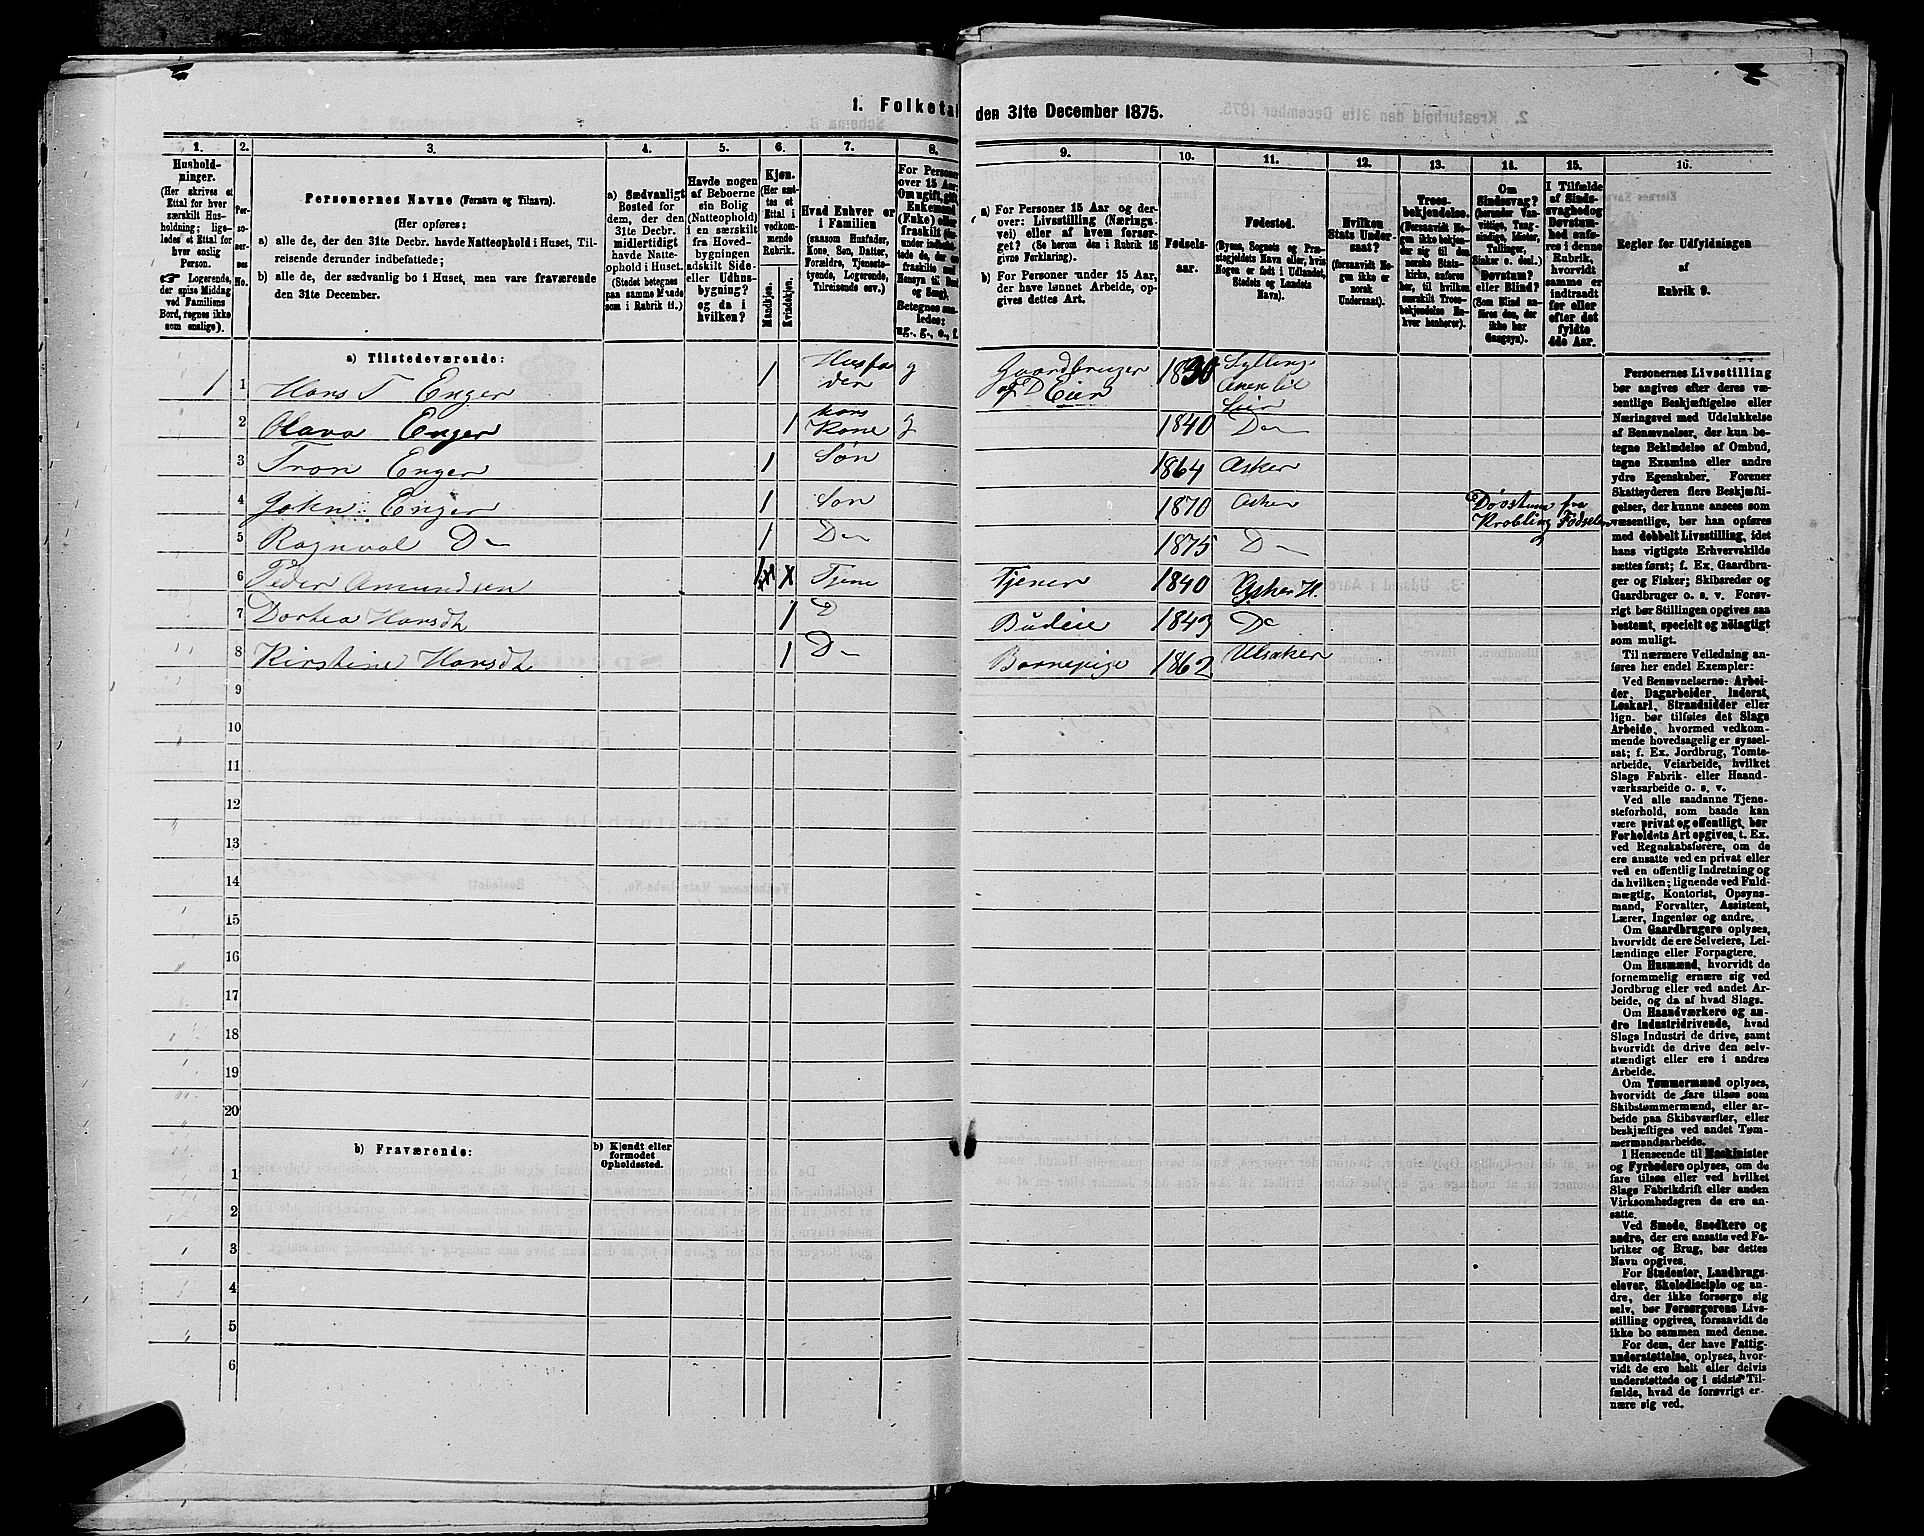 1. Folketal
den 31te December 1875.
1.
Hushold-
ninger.
(Her skrives et
Ettal for hver
særskilt Hus-
holdning; lige-
ledes et Ettal for
hver enslig
Person.
☞ Logerende,
der spise Middag
ved Familiens
Bord, regnes ikke
som enslige).
2.
Per-
so-
ner-
nes
No.
3.
Personernes Navne (Fornavn og Tilnavn).
(Her opføres:
a) alle de, der den 31te Decbr. havde Natteophold i Huset, Til-
reisende derunder indbefattede;
b) alle de, der sædvanlig bo i Huset, men vare fraværende
den 31te December.
4.
a) Sædvanligt
Bosted for
dem, der den
31te Decbr.
midlertidigt
havde Natte-
ophold i Huset.
(Stedet betegnes
paa samme Maade
som i Rubrik 11.)
5.
Havde nogen
af Beboerne
sin Bolig
(Natteophold)
i en særskilt
fra Hoved-
bygningen
adskilt Side-
eller Udhus-
bygning?
og da i
hvilken?
6.
Kjøn.
(Her sæt-
tes et
Ettal i
vedkom-
mende
Rubrik.
Mandkjøn.
Kvindekjøn.
7.
Hvad Enhver er
i Familien
(saasom Husfader,
Kone, Søn, Datter,
Forældre, Tjeneste-
tyende, Logerende,
Tilreisende osv.)
8.
For Personer
over 15 Aar:
Om ugift, gift,
Enkemand
(Enke) eller
fraskilt
Betegnes saa-
ledes:
ug., g., e., f.
9.
a) For Personer 15 Aar og der-
over: Livsstilling (Nærings-
vei) eller af hvem forsør-
get? (Se herom den i Rubrik 16
givne Forklaring).
b) For Personer under 15 Aar,
der have lønnet Arbeide, op-
gives dettes Art.
10.
Fødsels-
aar.
11.
Fødested.
(Byens, Sognets og Præ-
stegjeldets Navn eller, hvis
Nogen er født i Udlandet,
Stedets og Landets
Navn).
12.
Hvilken
Stats Under-
saat?
(forsaavidt No-
gen ikke er
norsk
Undersaat).
13.
Troes-
bekjendelse.
(Forsaavidt No-
gen ikke bekjen-
der sig til den
norske Stats-
kirke, anføres
her, til hvilken
særskilt Troes-
bekjendelse En-
hver henhører).
14.
Om
Sindssvag?
(herunder Van-
vittige, Tung-
sindige, Idioter,
Tullinger,
Sinker o. desl.)
Døvstum?
eller Blind?
(Som Blind an-
føres den, der
ikke har
Gangsyn).
15.
I Tilfælde
af Sinds-
svaghed og
Døvstum-
hed anfø-
res i denne
Rubrik,
hvorvidt
samme er
indtraadt
før eller
efter det
fyldte
4de Aar.
16.
Regler for Udfyldningen
af
Rubrik 9.
a) Tilstedeværende:
1 1 Hans T Enger 1 Husfa
der g Gaardbruger
og Eier 1830 Sylling
Lier
2 Olava Enger 1 hans
Kone g 1840 Do
3 Tron Enger 1 Søn 1864 Asker
4 John Enger 1 Søn 1870 Asker Døvstum fra
Fødselen
5 Ragnval Do 1 Do 1875 Do
6 Peder Amundsen Tjene Tjener 1840 Asker H.
7 Dortea Hansdt 1 D Budeie 1843 Do
8 Kirstine Hansdt 1 Do Barnepige 1862 Ulsaker
9
10
11
12
13
14
15
16
17
18
19
20
b) Fraværende:
b) Kjendt eller
formodet
Opholdssted.
1
2
3
4
5
6
Personernes Livsstilling
bør angives efter deres væ-
sentlige Beskjæftigelse eller
Næringsvei med Udelukkelse
af Benævnelser, der kun be-
tegne Beklædelse af Ombud,
tagne Examina eller andre
ydre Egenskaber. Forener
Skatteyderen flere Beskjæfti-
gelser, der kunne ansees som
væsentlige, bør han opføres
med dobbelt Livsstilling, idet
hans vigtigste Erhvervskilde
sættes først; f. Ex. Gaardbru-
ger og Fisker; Skibsreder og
Gaardbruger o. s. v. Forøv-
rigt bør Stillingen opgives saa
bestemt, specielt og nøiagtigt
som muligt.
Til nærmere Veiledning an-
føres her endel Exempler:
Ved Benævnelserne: Arbei-
der, Dagarbeider, Inderst,
Løskarl, Strandsidder eller
lign. bør tilføies det Slags
Arbeide, hvormed vedkom-
mende hovedsagelig er syssel-
sat; f. Ex. Jordbrug, Tomte-
arbeide, Veiarbeide, hvilket
Slags Fabrik- eller Haand-
værksarbeide o. s. v.
Ved alle saadanne Tjene-
steforhold, som baade kan
være privat og offentligt, bør
Forholdets Art opgives, t. Ex.
ved Regnskabsførere, om de
ere ansatte ved en privat eller
ved en offentlig Indretning og
da hvilken; lignende ved Fuld-
mægtig, Kontorist, Opsyns-
mand, Forvalter, Assistent,
Lærer, Ingeniør og andre.
Om Gaardbrugere oplyses,
hvorvidt de ere Selveiere, Lei-
lændinge eller Forpagtere.
Om Husmænd, hvorvidt de
fornemmelig ernære sig ved
Jordbrug eller ved andet Ar-
beide, og da af hvad Slags.
Om Haandværkere og an-
dre Industridrivende, hvad
Slags Industri de drive, samt
hvorvidt de drive den selv-
stændigt eller ere i andres
Arbeide.
Om Tømmermænd oplyses,
hvorvidt de fare tilsøs som
Skibstømmermænd, eller ar-
beide paa Skibsværfter, eller
beskjæftiges ved andet Tøm-
mermandsarbeide.
I Henseende til Maskinister
og Fyrbødere oplyses, om de
fare tilsøs eller ved hvilket
Slags Fabrikdrift eller anden
Virksomhedsgren de ere an-
satte.
Ved Smede, Snedkere og
andre, der ere ansatte ved Fa-
briker og Brug, bør dettes
Navn opgives.
For Studenter, Landbrugs-
elever, Skoledisciple og an-
dre, der ikke forsørge sig
selv, bør Forsørgerens Livs-
stilling opgives, forsaavidt de
ikke bo sammen med denne.
For dem, der have Fattig-
understøttelse, oplyses, hvor-
vidt de ere helt eller delvis
understøttede og i sidste Til-
fælde, hvad de forøvrigt er-
nære sig ved.